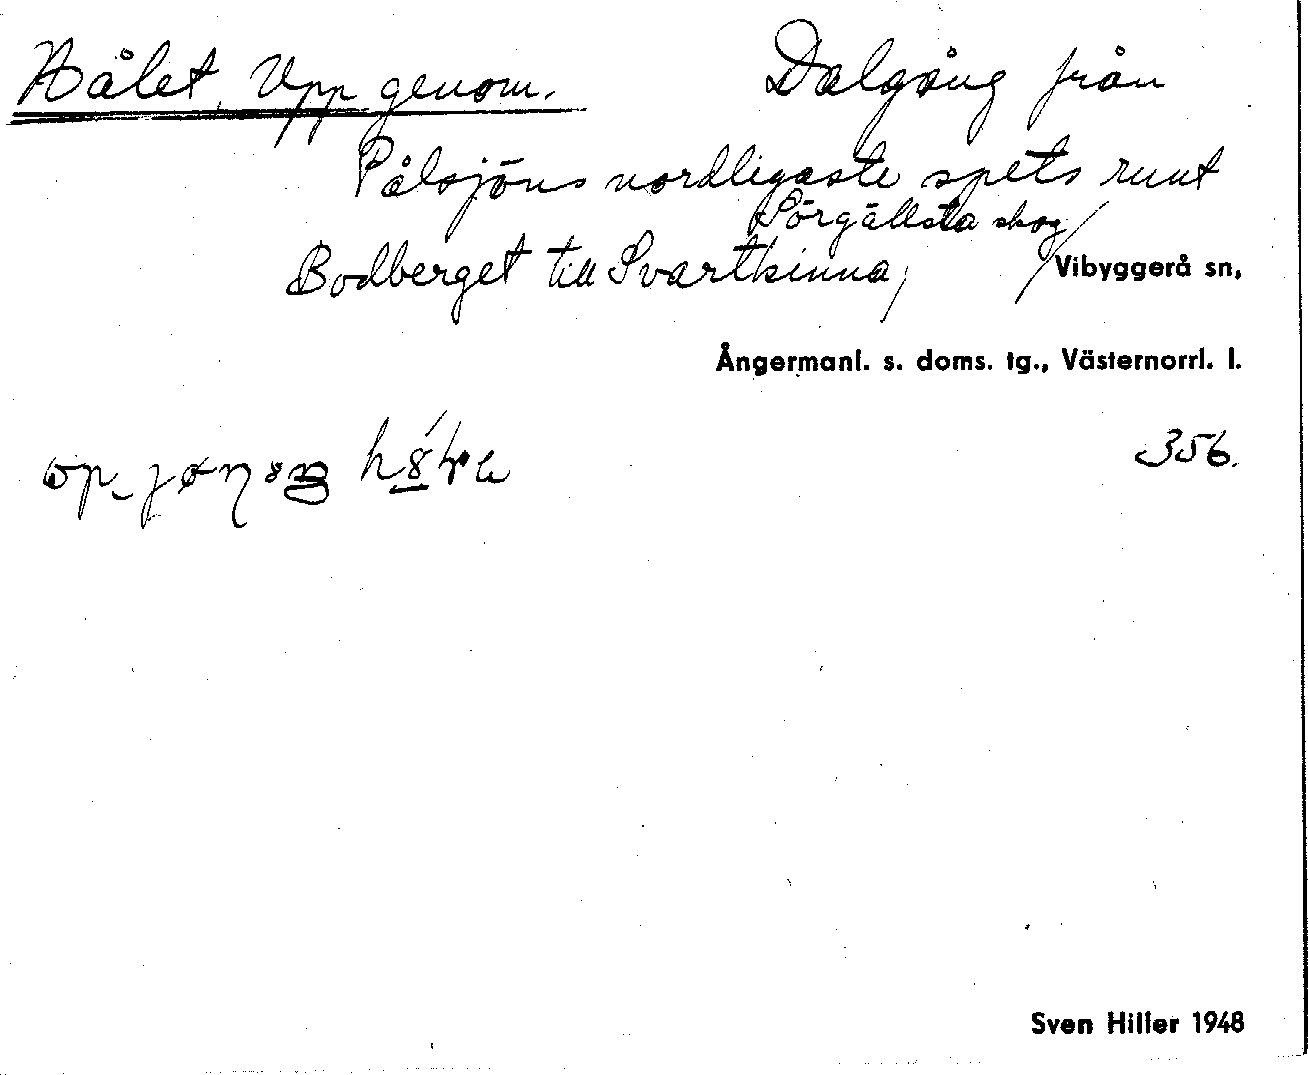 Hålet, Upp genom. Dalgång från
Pålsjöns nordligaste spets runt
Sörgällsta skog
Bodberget till Svarttsinna, Vibyggerå sn,
Ångermanl. s. doms. tg., Västernorrl. l.
356.
Sven Hiller 1948